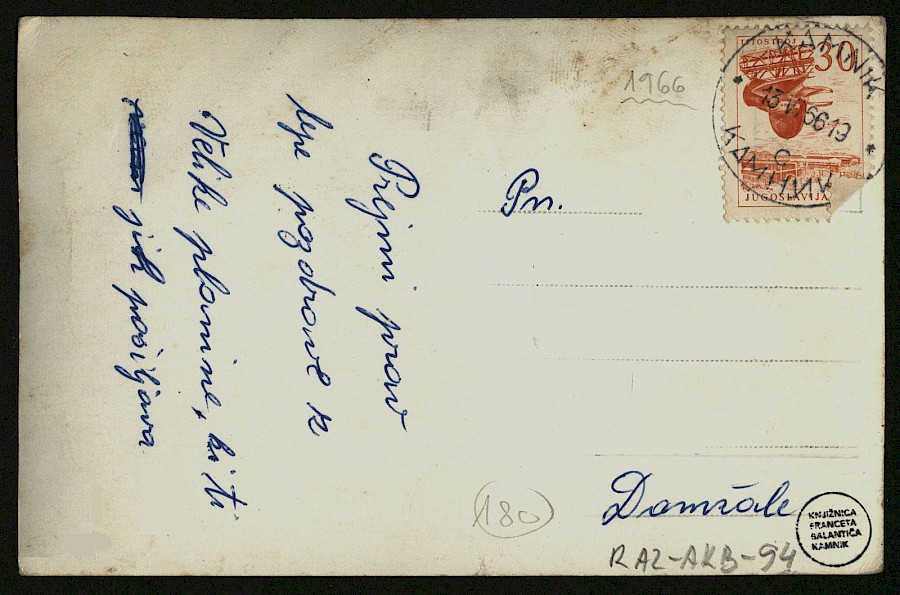 Prejmi prav
lepe pozdrave iz
Velike planine, ki ti
jih pošiljava
1966
Pn.
Domžale
180
RAZ-AKB-94
LITOSTROJ
30
JUGOSLAVIJA
KAMNIK
13.VI.66 19
C
KAMNIK
KNJIŽNICA
FRANCETA
BALANTIČA
KAMNIK